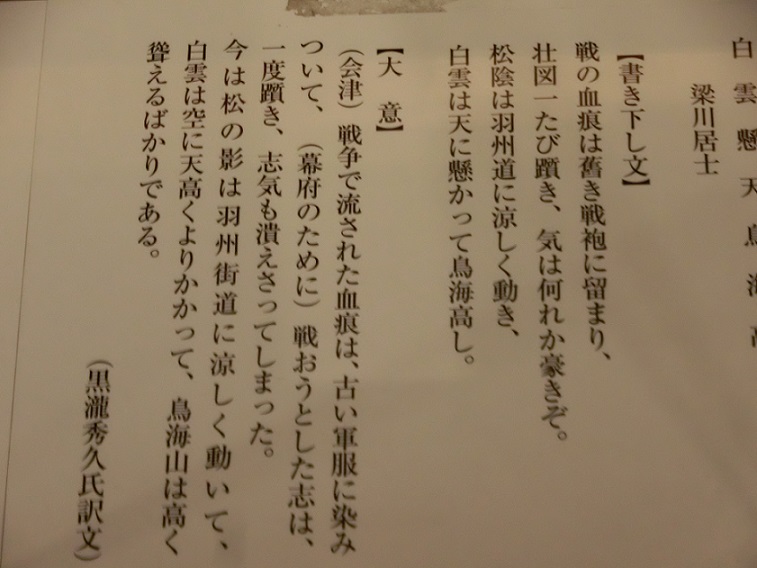 白雲懸天鳥海高
梁川居士
【書き下し文】
戦の血痕は舊き戦袍に留まり、
壮図一たび躓き、気は何れか豪きぞ。
松陰は羽州道に涼しく動き、
白雲は天に懸かって鳥海高し。
【大 意】
（会津）戦争で流された血痕は、古い軍服に染み
ついて、（幕府のために）戦おうとした志は、
一度躓き、志気も潰えさってしまった。
今は松の影は羽州街道に涼しく動いて、
白雲は空に天高くよりかかって、鳥海山は高く
聳えるばかりである。
（黒瀧秀久氏訳文）